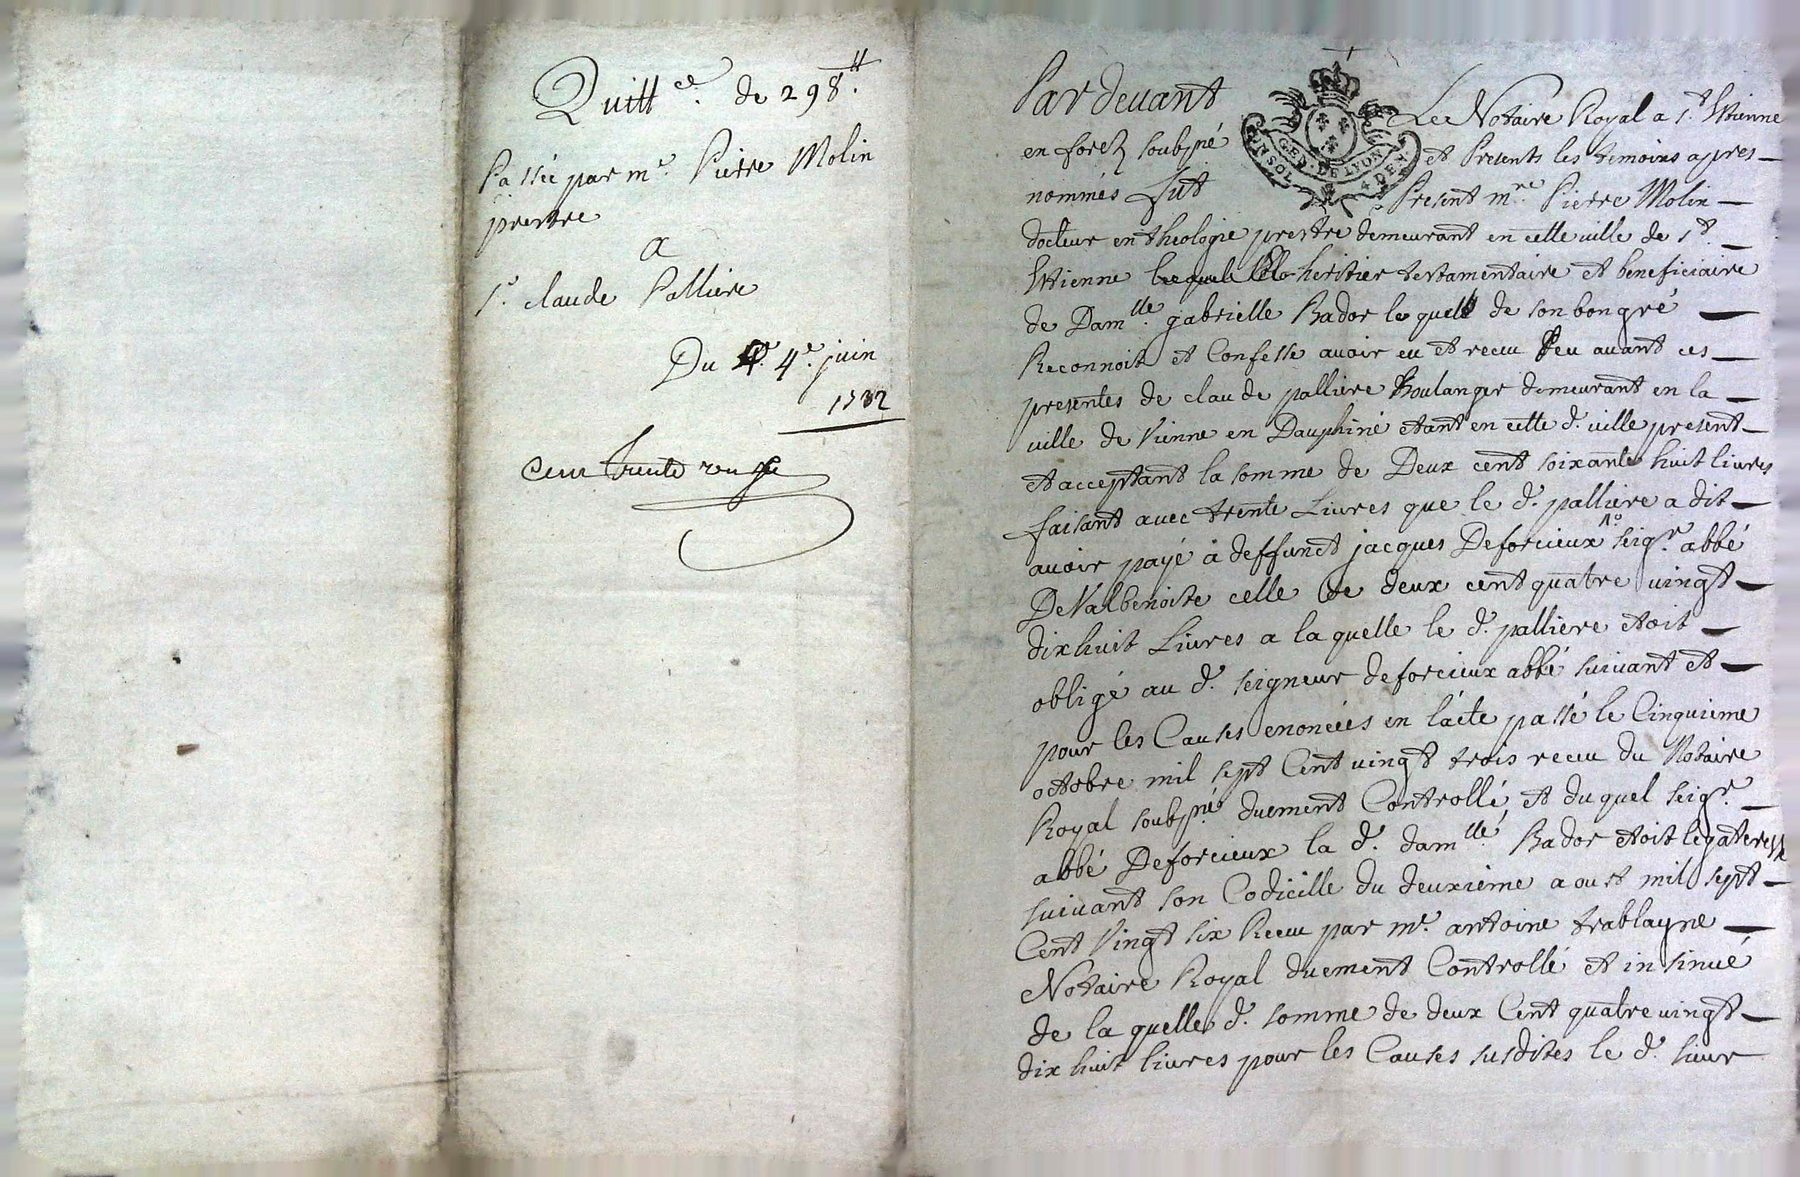 Quitt.ce de 298.tt
Passée par m.e Pierre Molin
prestre
A
S.r claude Palliere
Du 4.e juin
1732
Cent trente
Par devant Le Notaire Royal a S.t Etienne
en forez soubsné et Presents les temoins apres
nommés fut Present m.re Pierre Molin
docteur en theologie prestre demeurant en cette ville de S.t
Etienne heritier testamentaire et beneficiaire
de Dam.lle gabrielle Bador le quel de son bon gré
Reconnoit et Confesse avoir eu et recu Peu avant ces
presentes de claude palliere Boulanger demeurant en la
ville de Vienne en Dauphiné etant en cette d. ville present
et acceptant la somme de Deux cent soixante huit livres
faisant avec trente Livres que le d. palliere a dit
avoir payé à deffunct jacques Deforcieux seig.r abbé
De Valbenoite celle de deux cent quatre vingt
dix huit Livres a la quelle le d. palliere etoit
obligé au d. seigneur deforcieux abbé suivant et
pour les Causes enoncées en l'acte passé le Cinquieme
octobre mil sept Cent vingt trois recu du Notaire
Royal soubsné duement Controllé et du quel seig.r
abbé Deforcieux la d. dam.lle Bador etoit legateresse
suivant son Codicille du deuxieme aoust mil sept
Cent vingt six Recu par m.e antoine trablayne
Notaire Royal duement Controllé et insinué
de la quelle d. somme de deux Cent quatre vingt
dix huit livres pour les Causes susdites le d. sieur
GEN. DE LYON